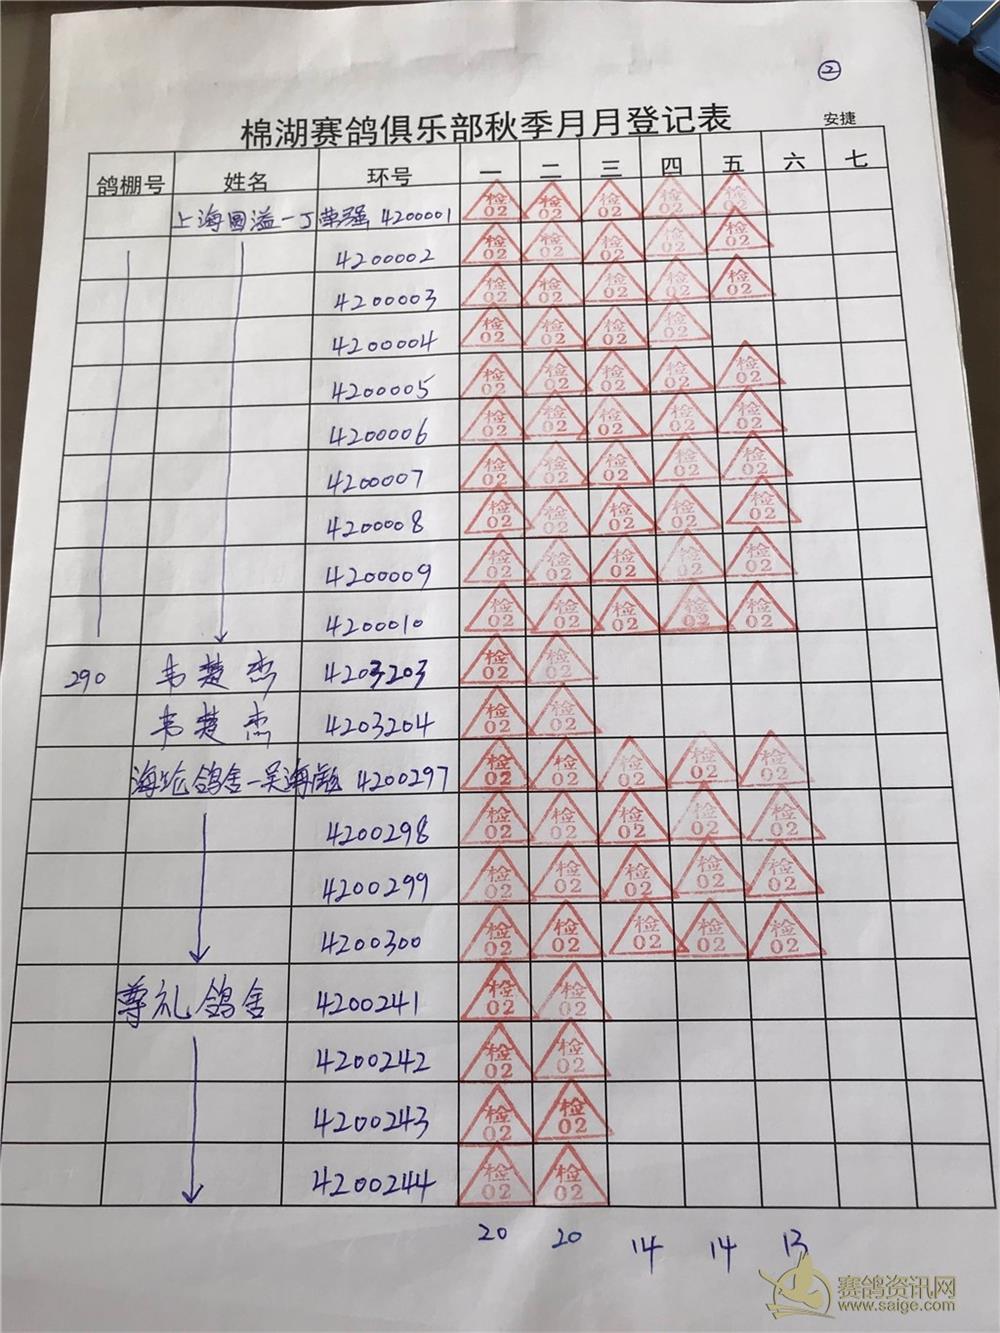 ②
棉湖赛鸽俱乐部秋季月月登记表 安捷
鸽棚号 姓名 环号 一 二 三 四 五 六 七
上海国溢一丁荣强 4200001 检02 检02 检02 检02 检02
4200002 检02 检02 检02 检02 检02
4200003 检02 检02 检02 检02 检02
4200004 检02 检02 检02 检02
4200005 检02 检02 检02 检02 检02
4200006 检02 检02 检02 检02 检02
4200007 检02 检02 检02 检02 检02
4200008 检02 检02 检02 检02 检02
4200009 检02 检02 检02 检02 检02
4200010 检02 检02 检02 检02 检02
290 韦楚杰 4203203 检02 检02
韦楚杰 4203204 检02 检02
海鸽舍一吴海 4200297 检02 检02 检02 检02 检02
4200298 检02 检02 检02 检02 检02
4200299 检02 检02 检02 检02 检02
4200300 检02 检02 检02 检02 检02
尊礼鸽舍 4200241 检02 检02
4200242 检02 检02
4200243 检02 检02
4200244 检02 检02
20 20 14 14 13
赛鸽资讯网
www.saige.com